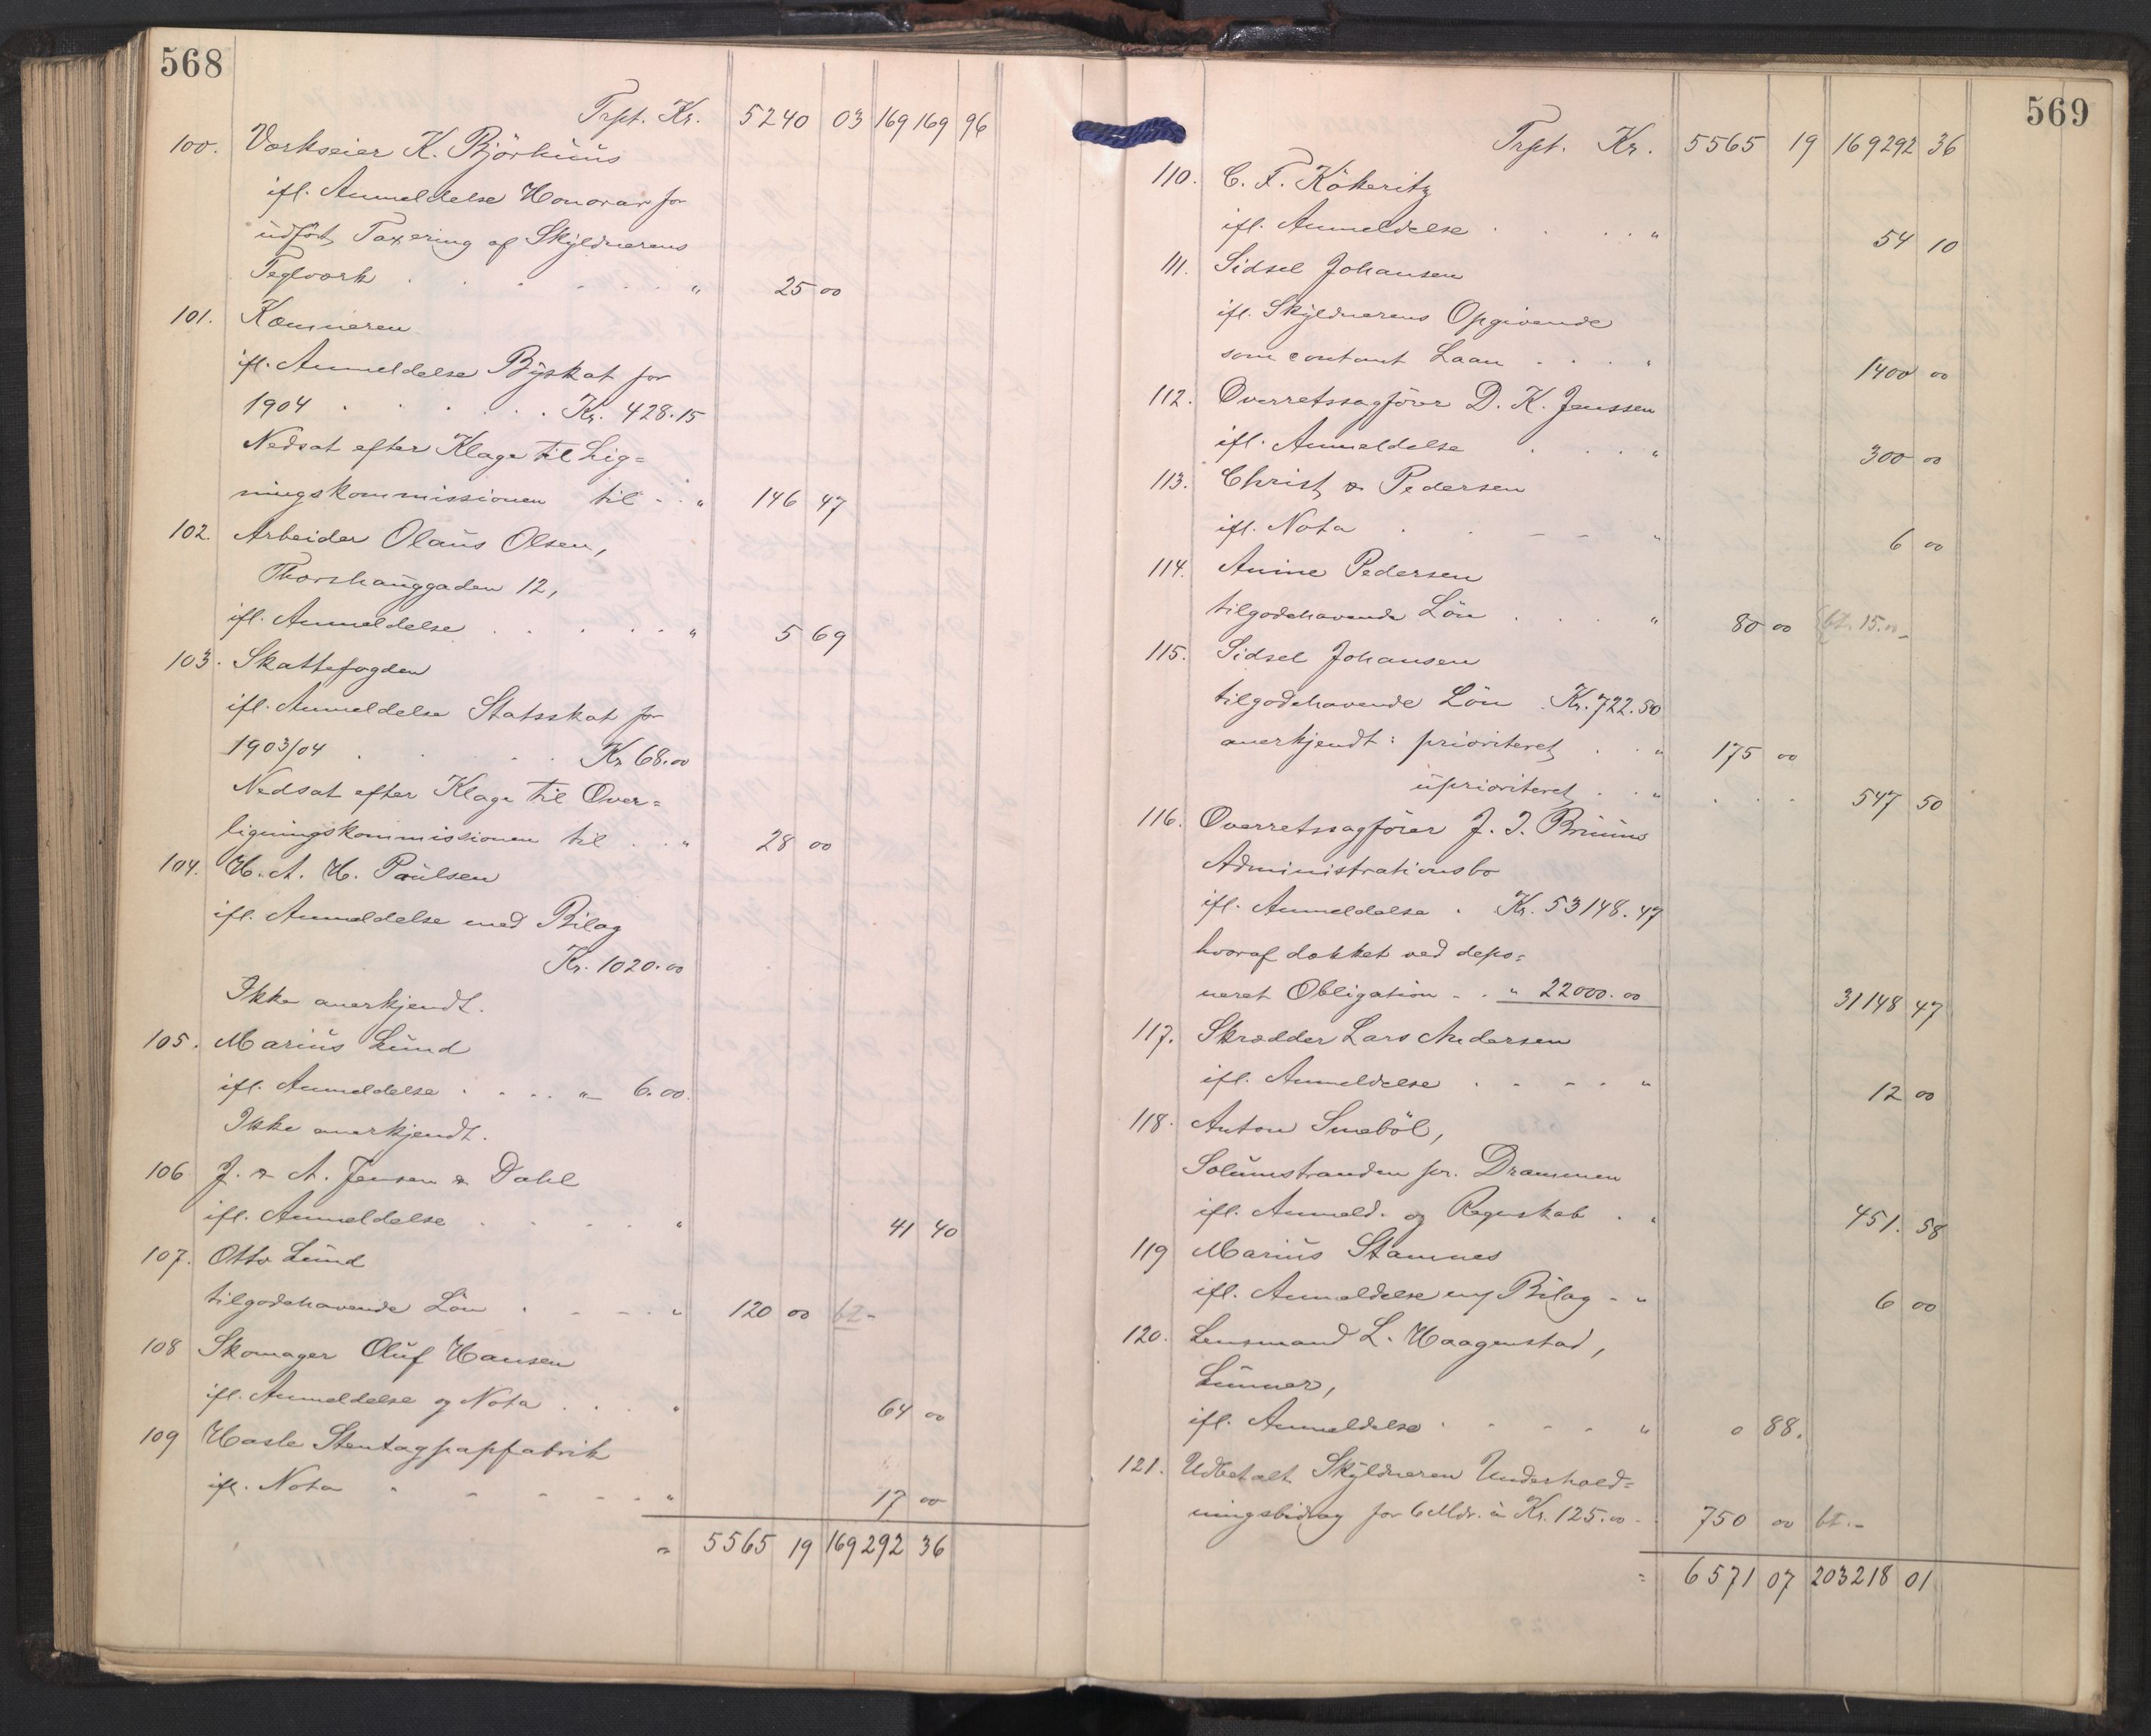 568
Trpt. Kr. 5240 03 169169 96
100. Værkseier K. Björhuus
ifl. Anmeldelse Honorar for
udført Taxering af Skyldnerens
Teglværk . . . . . . " 25 00
101. Kæmneren
ifl. Anmeldelse Byskat for
1904 . . . . . . Kr. 428.15
Nedsat efter Klage til Lig=
ningskommissionen til - . " 146 47
102. Arbeider Olaus Olsen,
Thorshauggaden 12,
ifl. Anmeldelse . . . . . " 5 69
103. Skattefogden
ifl. Anmeldelse Statsskat for
1903/04 . . . . . Kr 68.00
Nedsat efter Klage til Over=
ligningskommissionen til . . " 28 00
104. H. A. H. Paulsen
ifl. Anmeldelse med Bilag
Kr. 1020.00
Ikke anerkjendt.
105. Marius Lund
ifl. Anmeldelse . . . . " 6.00.
Ikke anerkjendt.
106 J. & A. Jensen & Dahl
ifl. Anmeldelse . . . . " 41 40
107. Otto Lund
tilgodehavende Lön . - - . " 120 00 bt-
108 Skomager Oluf Hansen
ifl. Anmeldelse og Nota . . . " 64 00
109 Hasle Stentagpapfabrik
ifl. Nota - - - - - . " 17 00
= 5565 19 169292 36
569
Trpt. Kr. 5565 19 169292 36
110. C. F. Kökeritz
ifl. Anmeldelse . . . . " 54 10
111. Sidsel Johansen
ifl. Skyldnerens Opgivende
som contant Laan . . . . " 1400 00
112. Overretssagförer D. K. Jenssen
ifl. Anmeldelse . . . " 300 00
113. Christ & Pedersen
ifl. Nota . . - - " 6 00
114. Anine Pedersen
tilgodehavende Lön . . . " 80 00 bt. 15.00-
115. Sidsel Johansen
tilgodehavende Lön . Kr. 722.50
anerkjendt: prioriteret . . " 175 00
uprioriteret . . " . . . 547 50
116. Overretssagförer J. J. Bruuns
Administrationsbo
ifl. Anmeldelse . Kr. 53148.47
hvoraf dækket ved depo=
neret Obligation - . " 22000.00 31148 47
117. Skrædder Lars Andersen
ifl. Anmeldelse . . - . " 12 00
118. Anton Smeböl,
Solumstranden pr. Drammen
ifl. Anmeld. og Regnskab . " 451. 58
119 Marius Stamnes
ifl. Anmeldelse m/ Bilag - " 6 00
120. Lensmand L. Haagenstad,
Lunner,
ifl. Anmeldelse . - - - " 0 88.
121. Udbetalt Skyldneren Underhold=
ningsbidrag for 6 Mdr. à Kr. 125.00 - 750 00 bt.-
= 6571 07 203218 01